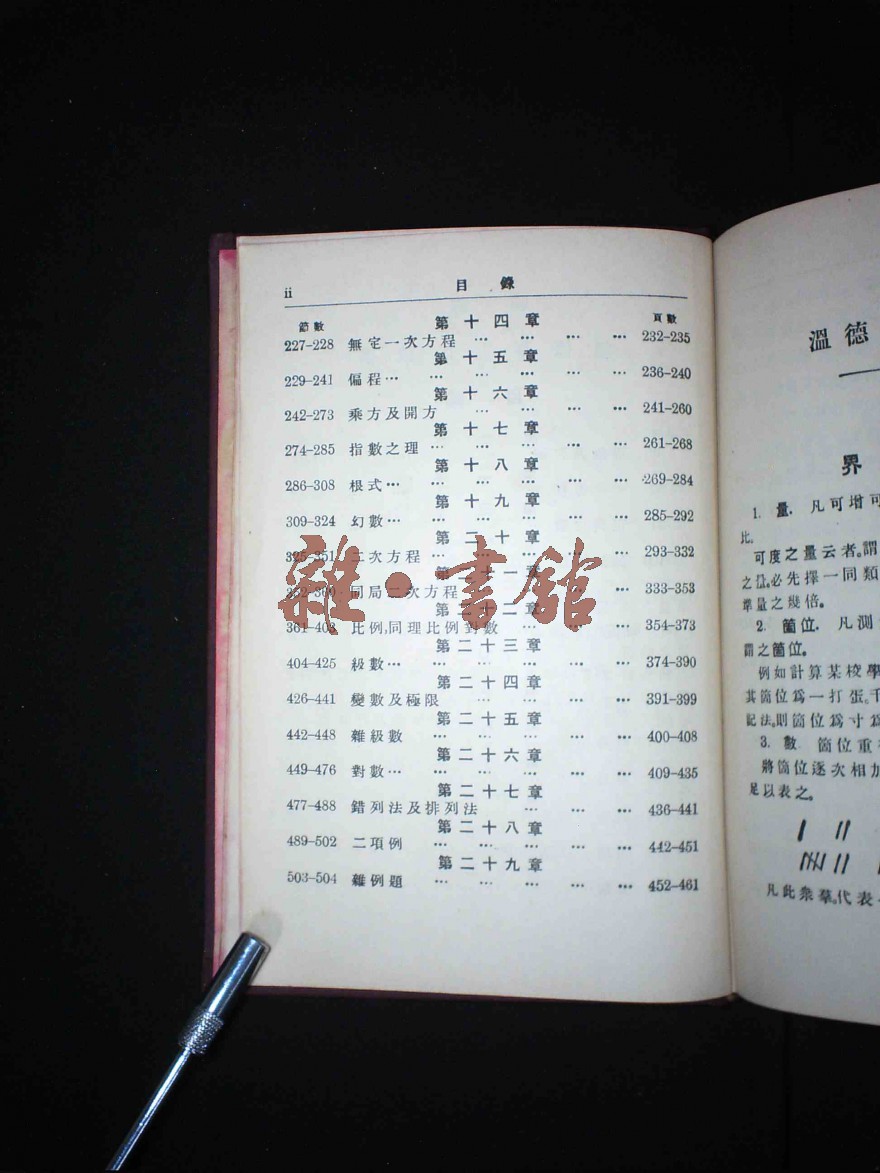 ii 目錄
節數 第十四章 頁數
227–228 無定一次方程 … … … … 232–235
第十五章
229–241 偏程… … … … … … 236–240
第十六章
242–273 乘方及開方 … … … … 241–260
第十七章
274–285 指數之理 … … … … … 261–268
第十八章
286–308 根式… … … … … … 269–284
第十九章
309–324 幻數… … … … … … 285–292
第二十章
325–351 二次方程 … … … … … 293–332
第二十一章
352–360 同局二次方程 … … … 333–353
第二十二章
361–403 比例,同理比例對數 … … … 354–373
第二十三章
404–425 級數… … … … … … 374–390
第二十四章
426–441 變數及極限 … … … … 391–399
第二十五章
442–448 雜級數 … … … … … 400–408
第二十六章
449–476 對數… … … … … … 409–435
第二十七章
477–488 錯列法及排列法 … … … 436–441
第二十八章
489–502 二項例 … … … … … 442–451
第二十九章
503–504 雜例題 … … … … … 452–461
雜·書館
溫德
界
1. 量. 凡可增可
比.
可度之量云者。謂
之量。必先擇一同類
準量之幾倍。
2. 箇位. 凡測
謂之箇位。
例如計算某校學
其箇位爲一打蛋。千
記法。則箇位爲寸爲
3. 數 箇位重
將箇位逐次相加
足以表之。
凡此衆羣。代表